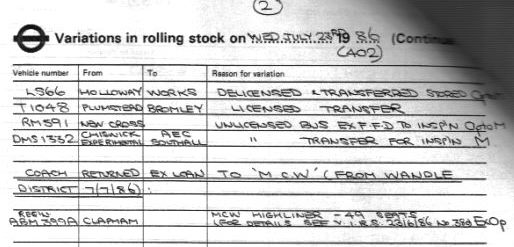 (2)
Variations in rolling stock on WED. JULY. 23RD 19 86 (Continue
(402)
Vehicle number From To Reason for variation
LS66 HOLLOWAY WORKS DELICENSED & TRANSFERRED STORED
T1048 PLUMSTEAD BROMLEY LICENSED TRANSFER
RM591 NEW CROSS UNLICENSED BUS EX F.F.D TO INSP'N O to M
DMS1332 CHISWICK EXPERIMENTAL AEC SOUTHALL " TRANSFER FOR INSP'N M
COACH RETURNED EX LOAN TO 'M C.W' (FROM WANDLE
DISTRICT 7/7/86) :
REG'N MCW HIGHLINER - 49 SEATS
ABM 399A CLAPHAM (FOR DETAILS SEE V.I.R.S. 23/6/86 No 380 Ex Op